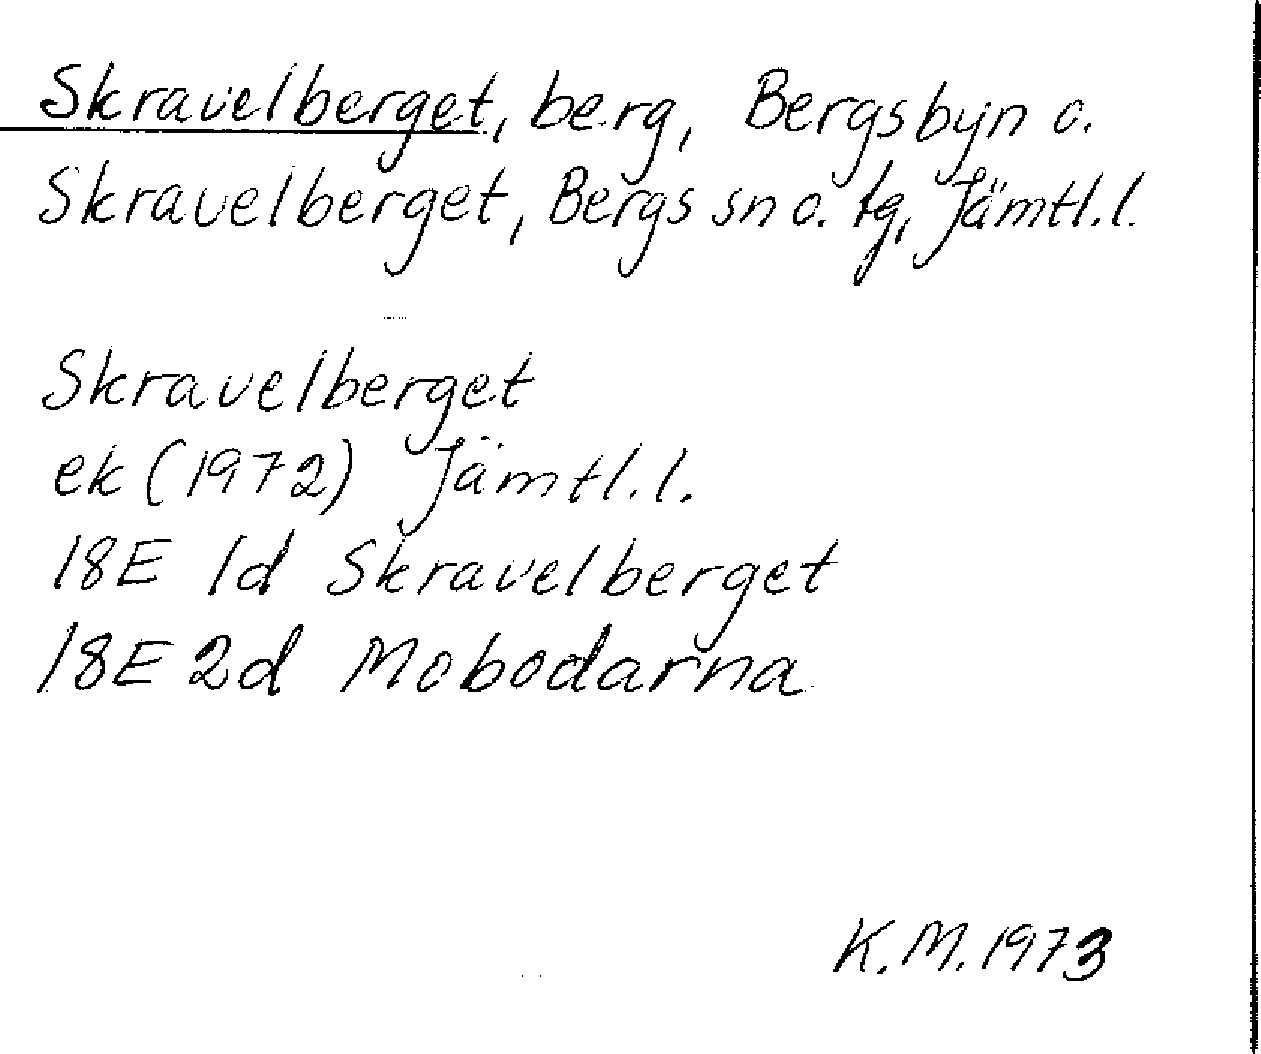 Skravelberget, berg, Bergsbyn o.
Skravelberget, Bergs sn o. tg, Jämtl. l.
Skravelberget
ek (1972) Jämtl. l.
18E 1d Skravelberget
18E 2d Mobodarna
K. M. 1973